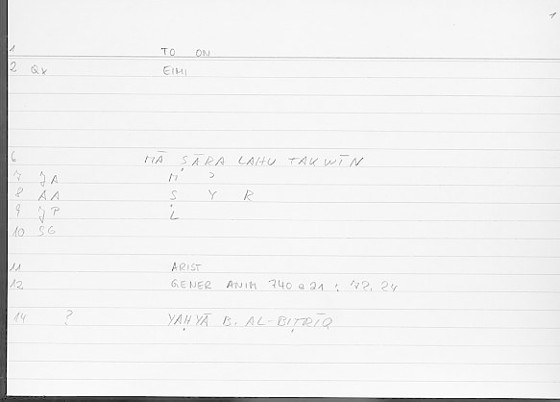 1
1 TO ON
2 QV EIMI
6 MĀ ṢĀRA LAHU TAKWĪN
7 JA M ʾ
8 AA Ṣ Y R
9 JP L
10 SG
11 ARIST
12 GENER ANIM 740 a 21 ; 72, 24
14 ? YAḤYĀ B. AL-BIṬRĪQ